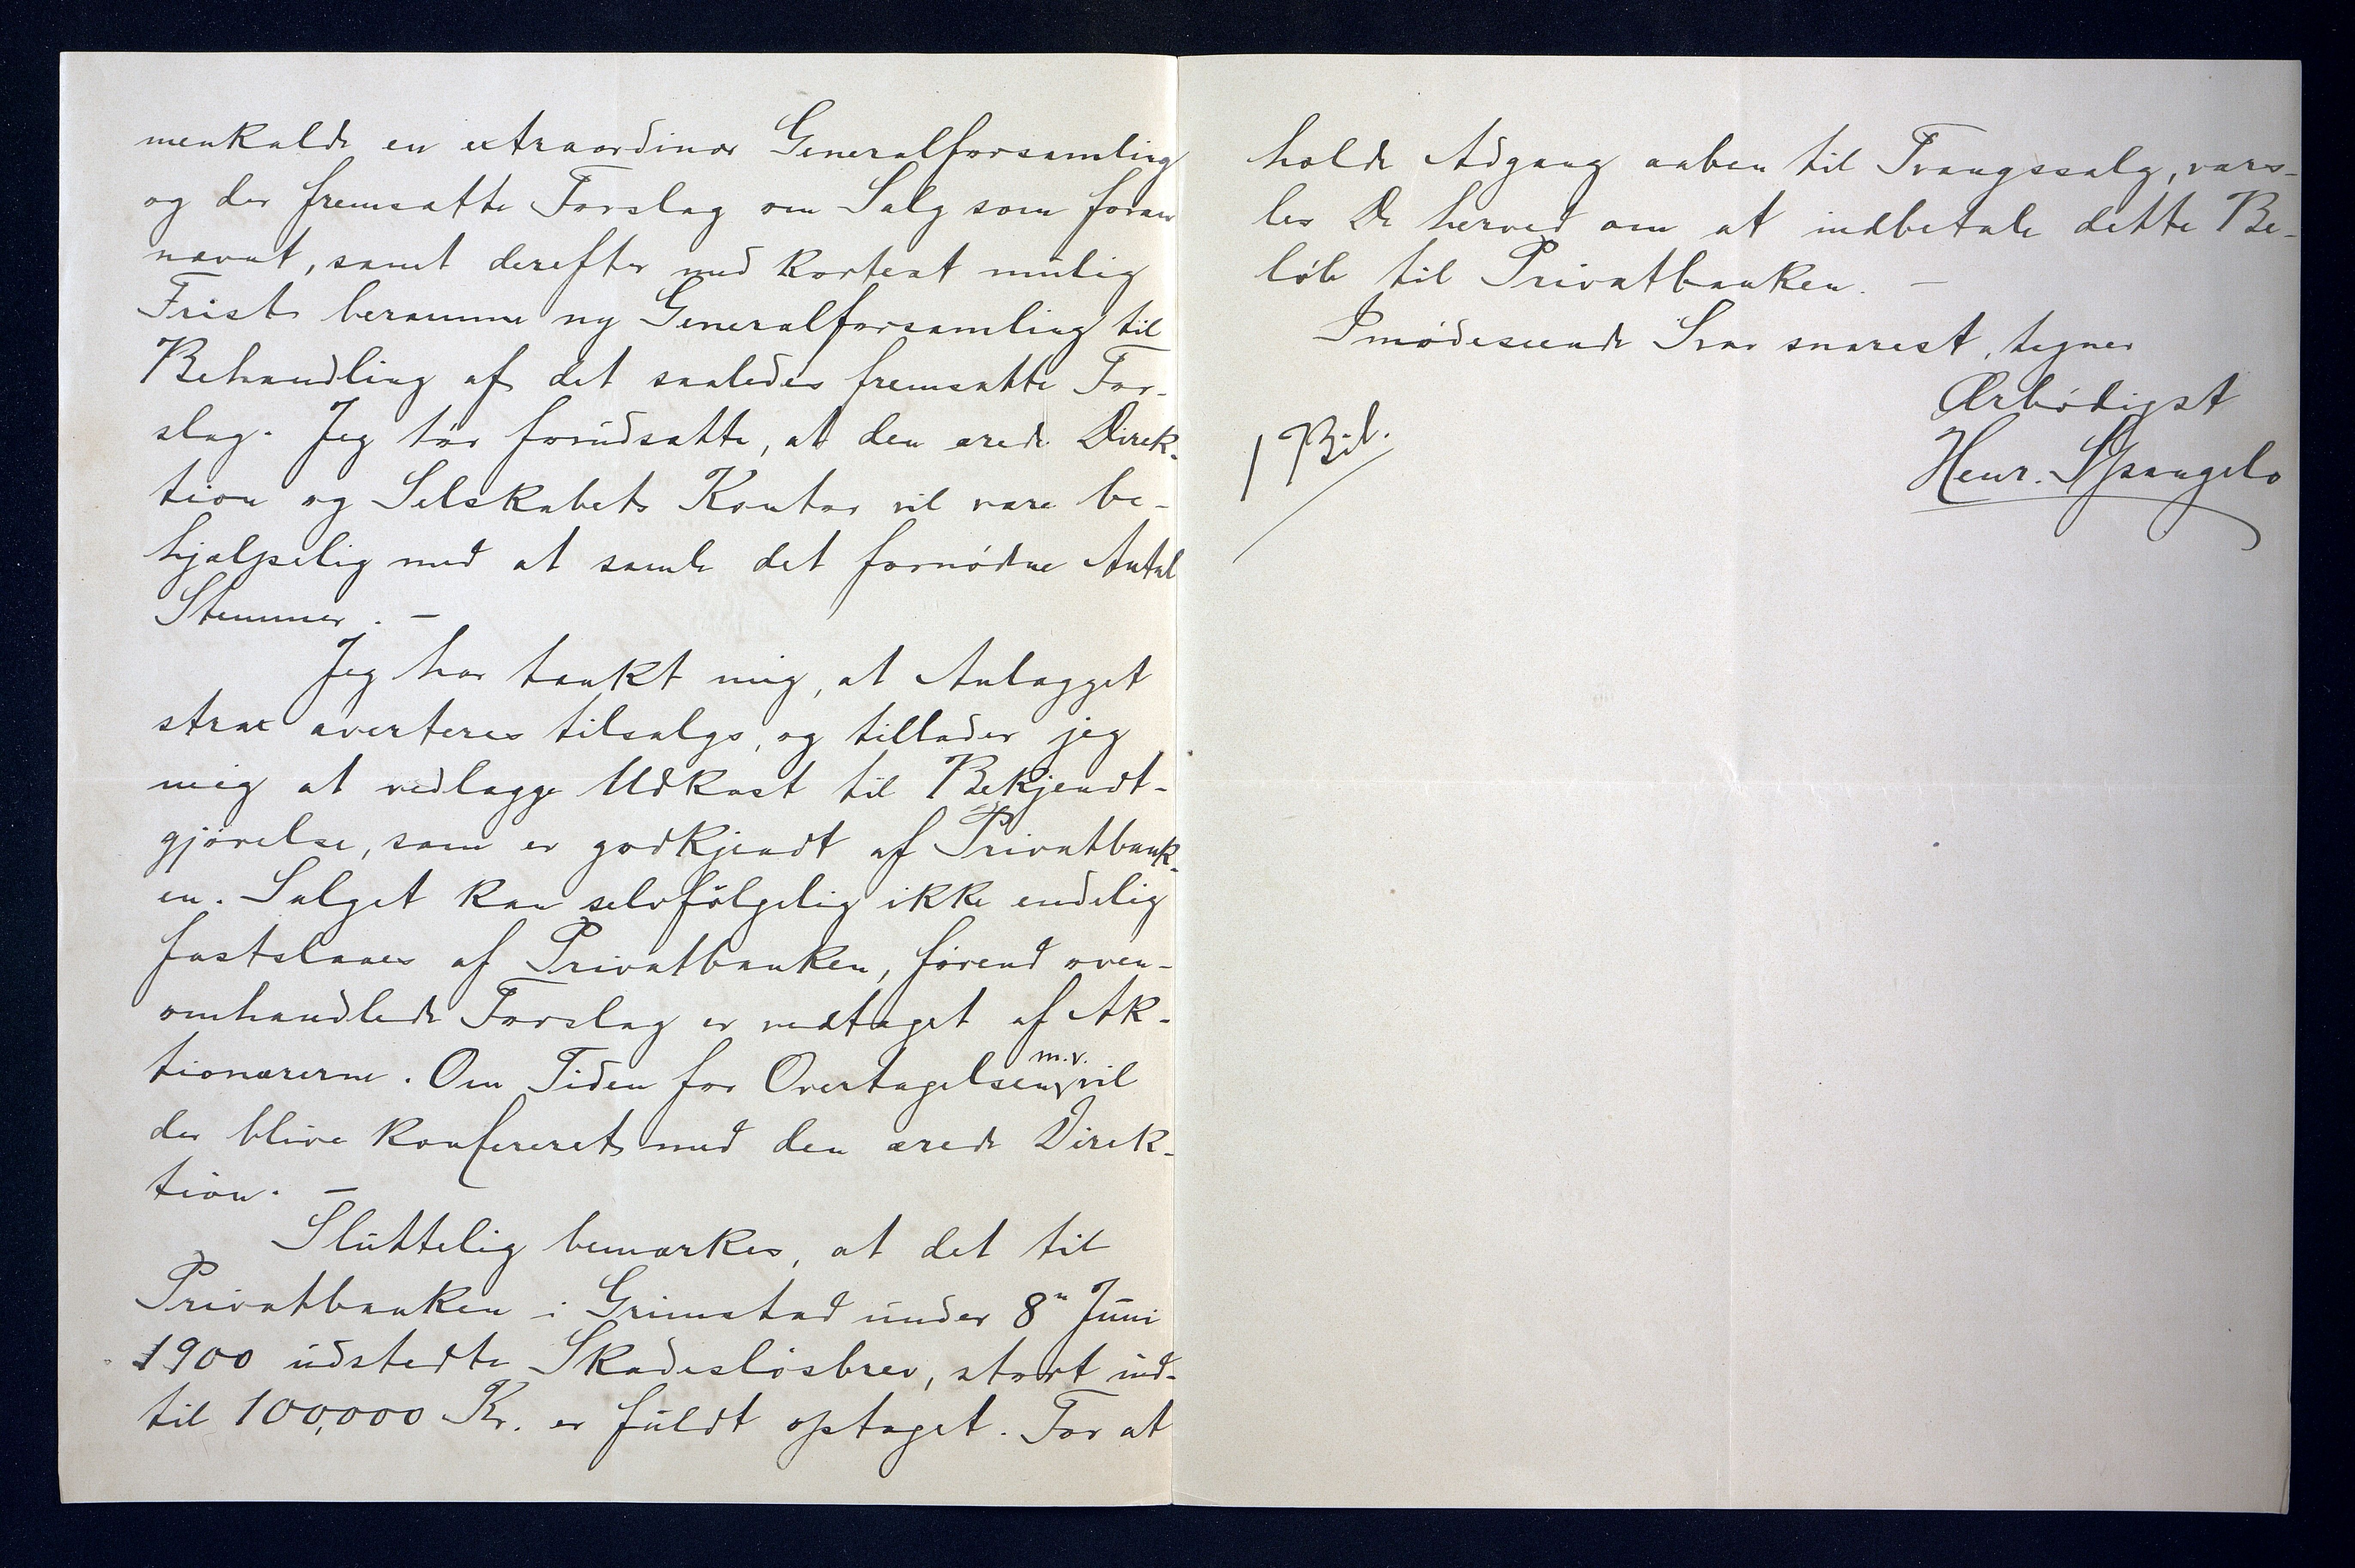 menkalde en extraordinær Generalforsamling
og der fremsætte Forslag om Salg som foran
nævnt, samt derefter med kortest mulig
Frist beramme ny Generalforsamling til
Behandling af det saaledes fremsatte For-
slag. Jeg tør forudsætte, at den ærede Direk-
tion og Selskabets Kontor vil være be-
hjælpelig med at samle det fornødne Antal
Stemmer. —
Jeg har tænkt mig, at Anlægget
strax averteres tilsalgs, og tillader jeg
mig at vedlægge Udkast til Bekjendt-
gjørelse, som er godkjendt af Privatbank-
en. Salget kan selvfølgelig ikke endelig
fastslaaes af Privatbanken, førend oven-
omhandlede Forslag er vedtaget af Ak-
tionærerne. Om Tiden for Overtagelsen m.v. vil
der blive konfereret med den ærede Direk-
tion. —
Sluttelig bemærkes, at det til
Privatbanken i Grimstad under 8n Juni
1900 udstedte Skadesløsbrev, stort ind-
til 100,000 Kr. er fuldt optaget. For at
holde Adgang aaben til Tvangssalg, vars-
les De herved om at indbetale dette Be-
løb til Privatbanken. —
Imødeseende Svar snarest, tegner
Ærbødigst
1 Bil.
Henr. Spangelo